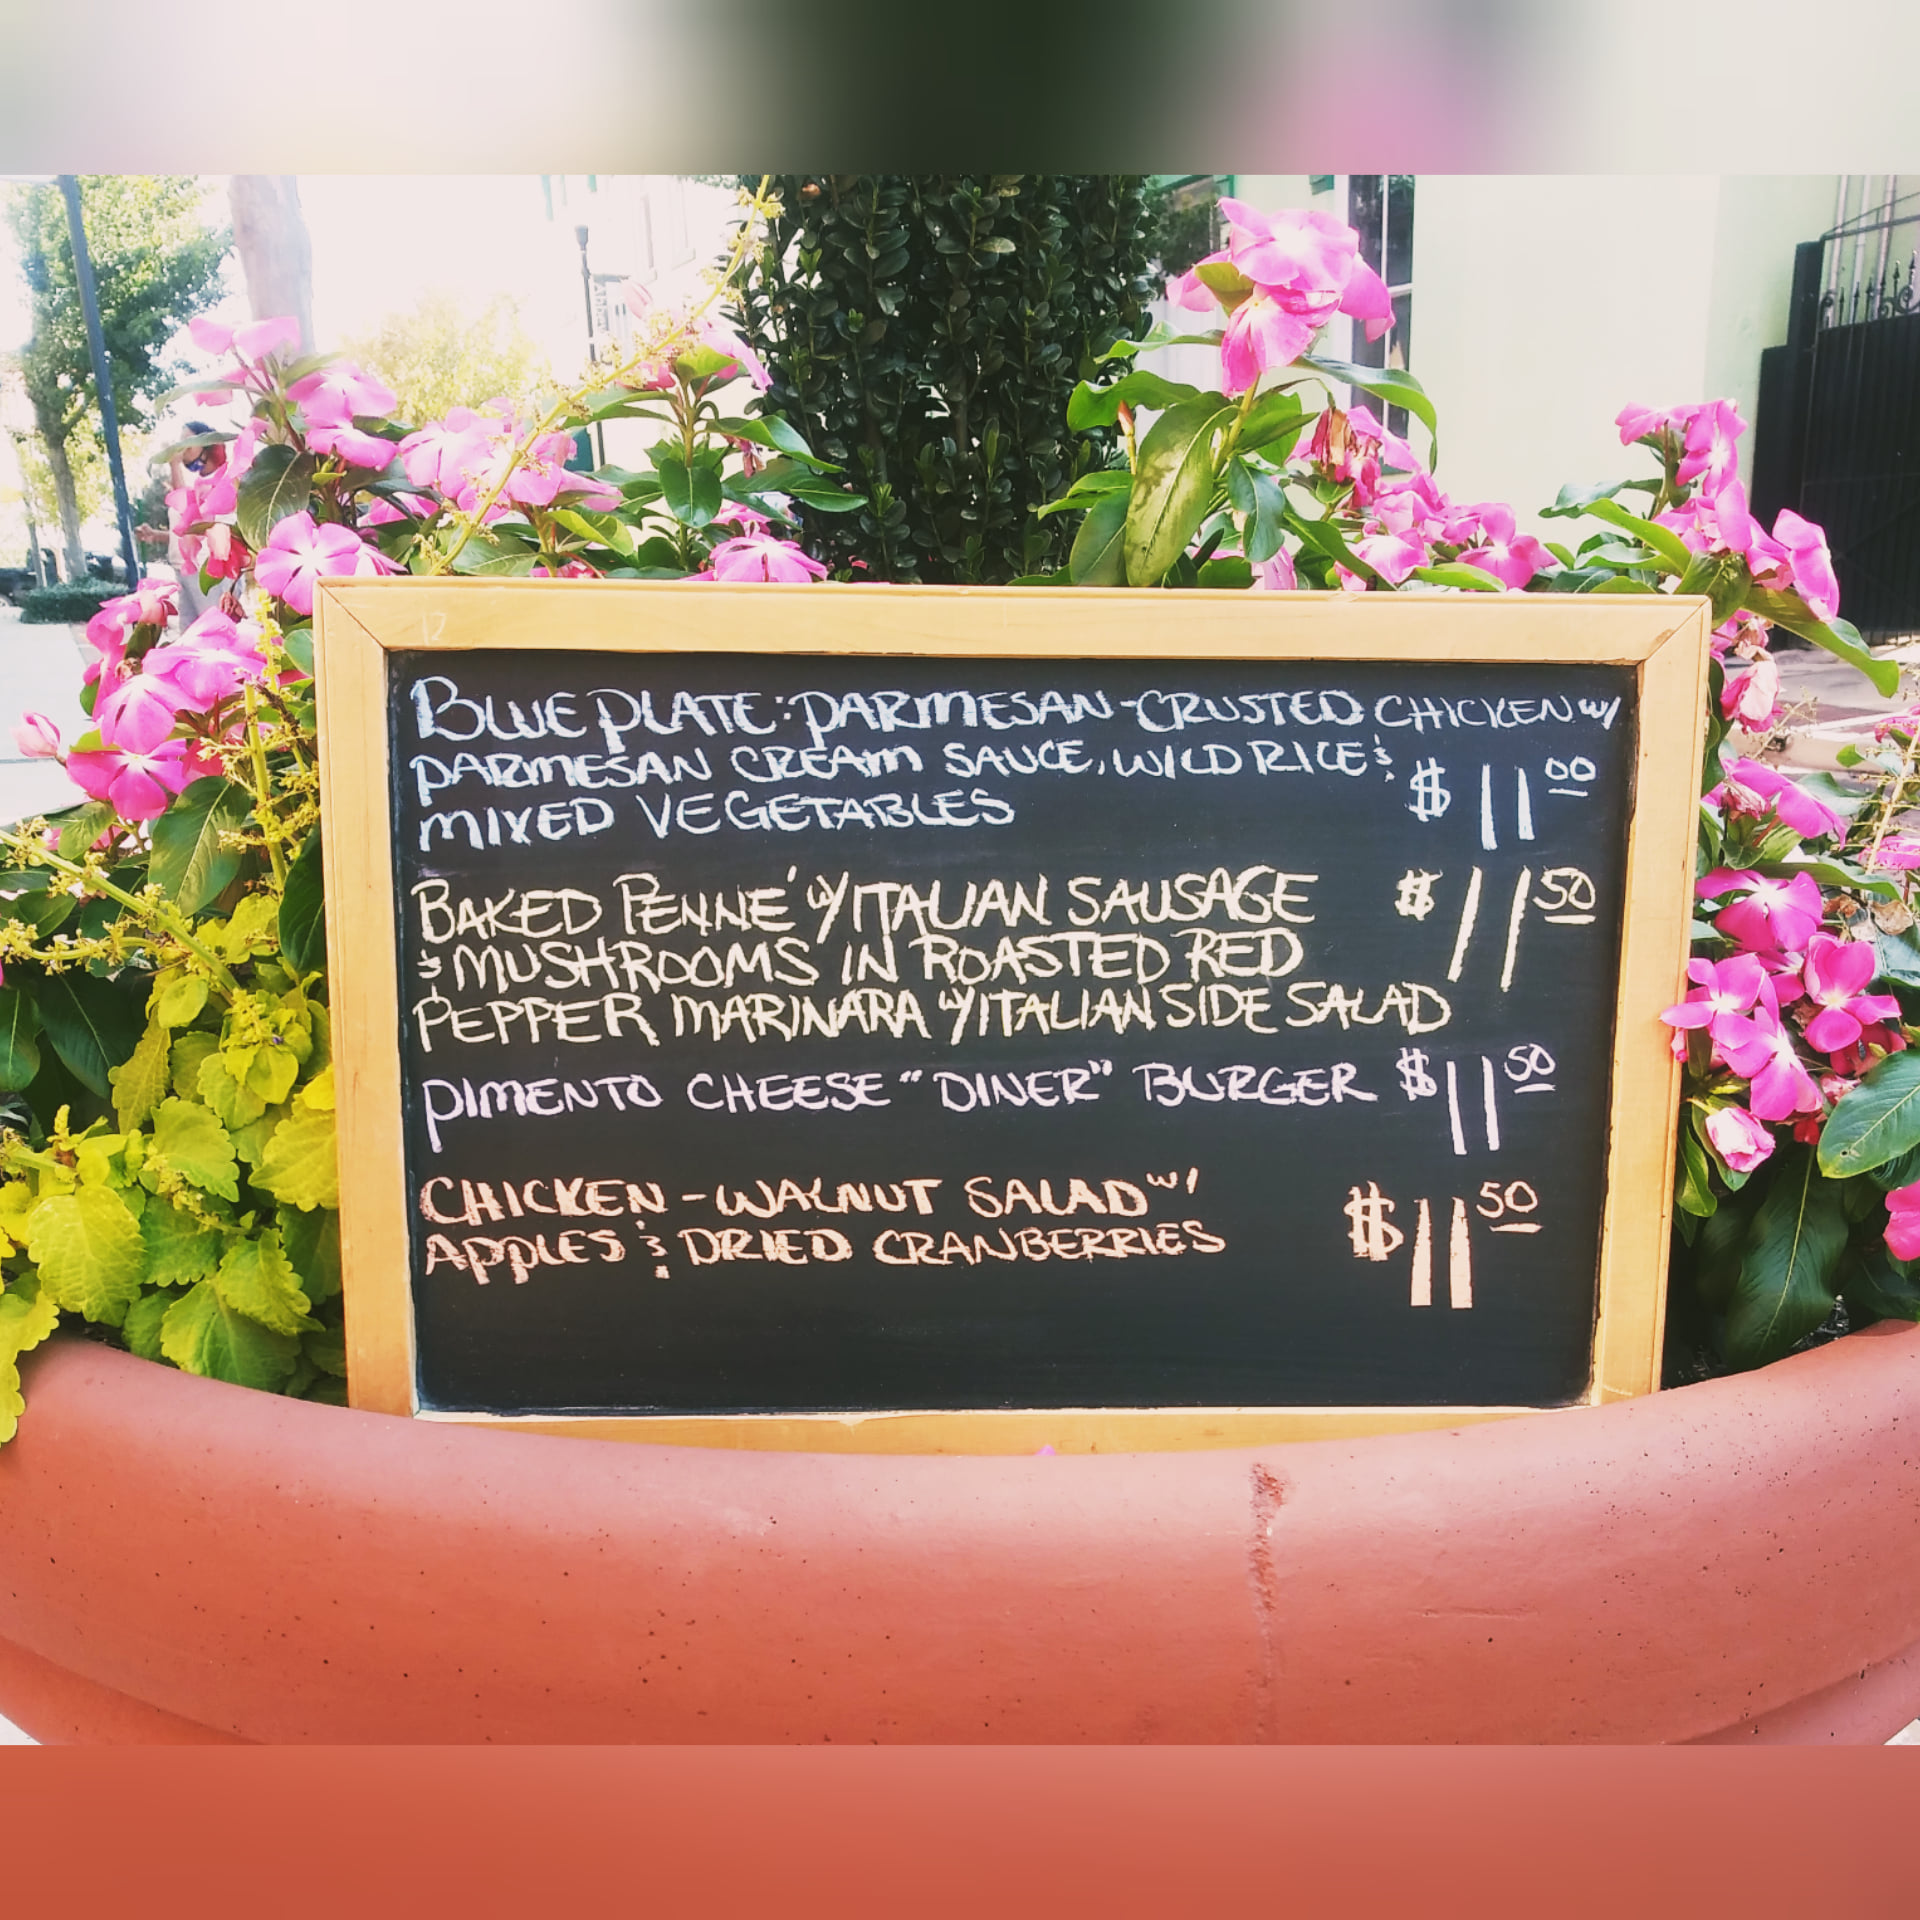 BLUE PLATE: PARMESAN-CRUSTED CHICKEN W/
PARMESAN CREAM SAUCE, WILD RICE &
MIXED VEGETABLES $11.00
BAKED PENNE' W/ ITALIAN SAUSAGE $11.50
& MUSHROOMS IN ROASTED RED
PEPPER MARINARA W/ ITALIAN SIDE SALAD
PIMENTO CHEESE "DINER" BURGER $11.50
CHICKEN-WALNUT SALAD W/
APPLES & DRIED CRANBERRIES $11.50